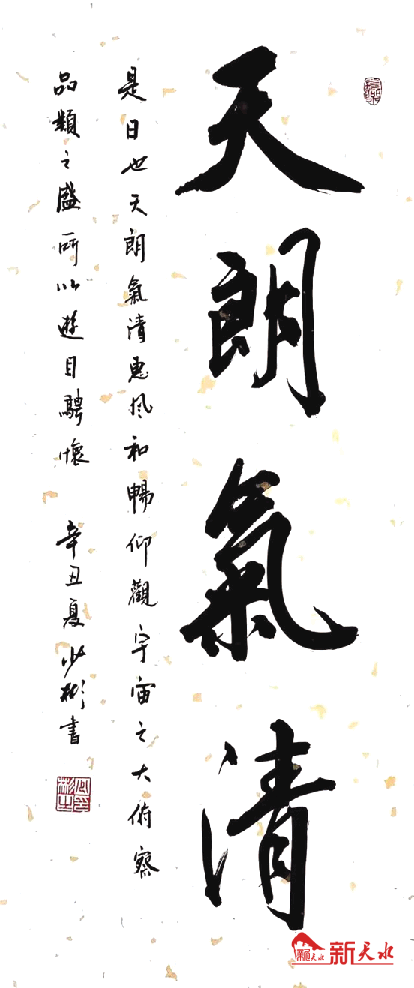 天朗氣清
是日也天朗氣清惠风和暢仰觀宇宙之大俯察
品類之盛所以遊目騁懷 辛丑夏少彬書
新天水